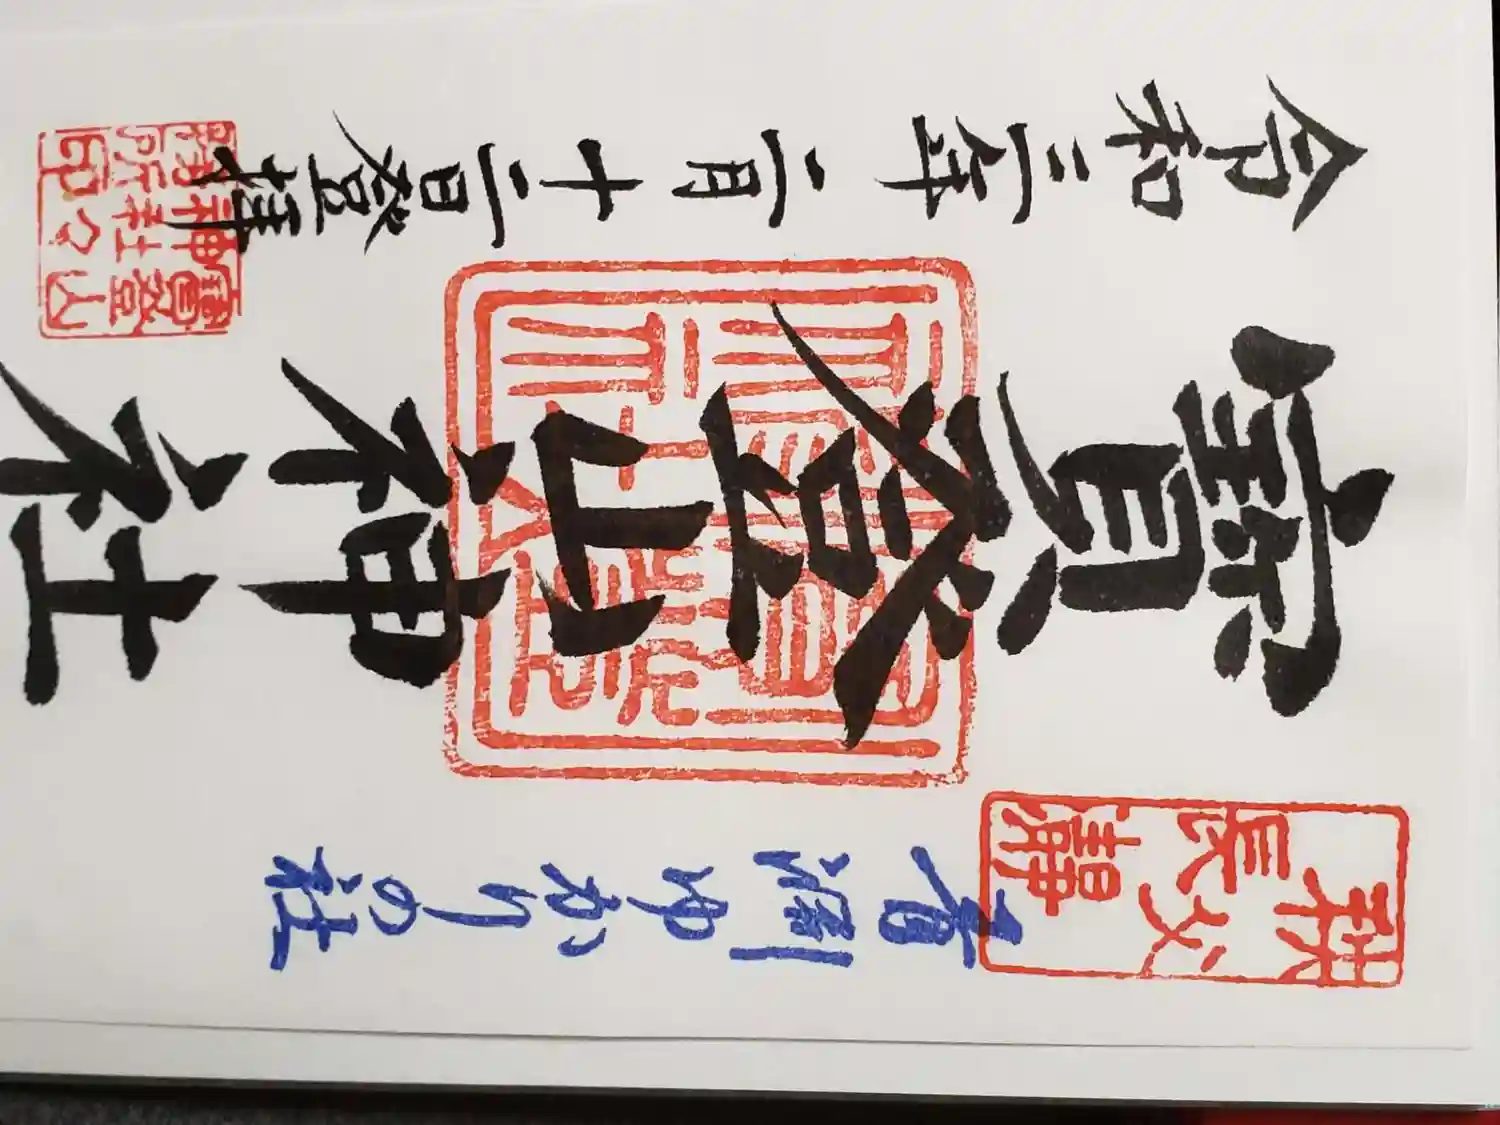 秩父長瀞
青淵ゆかりの社
寳登山神社
令和三年二月十二日登拝
寶登山
神社々
務所印